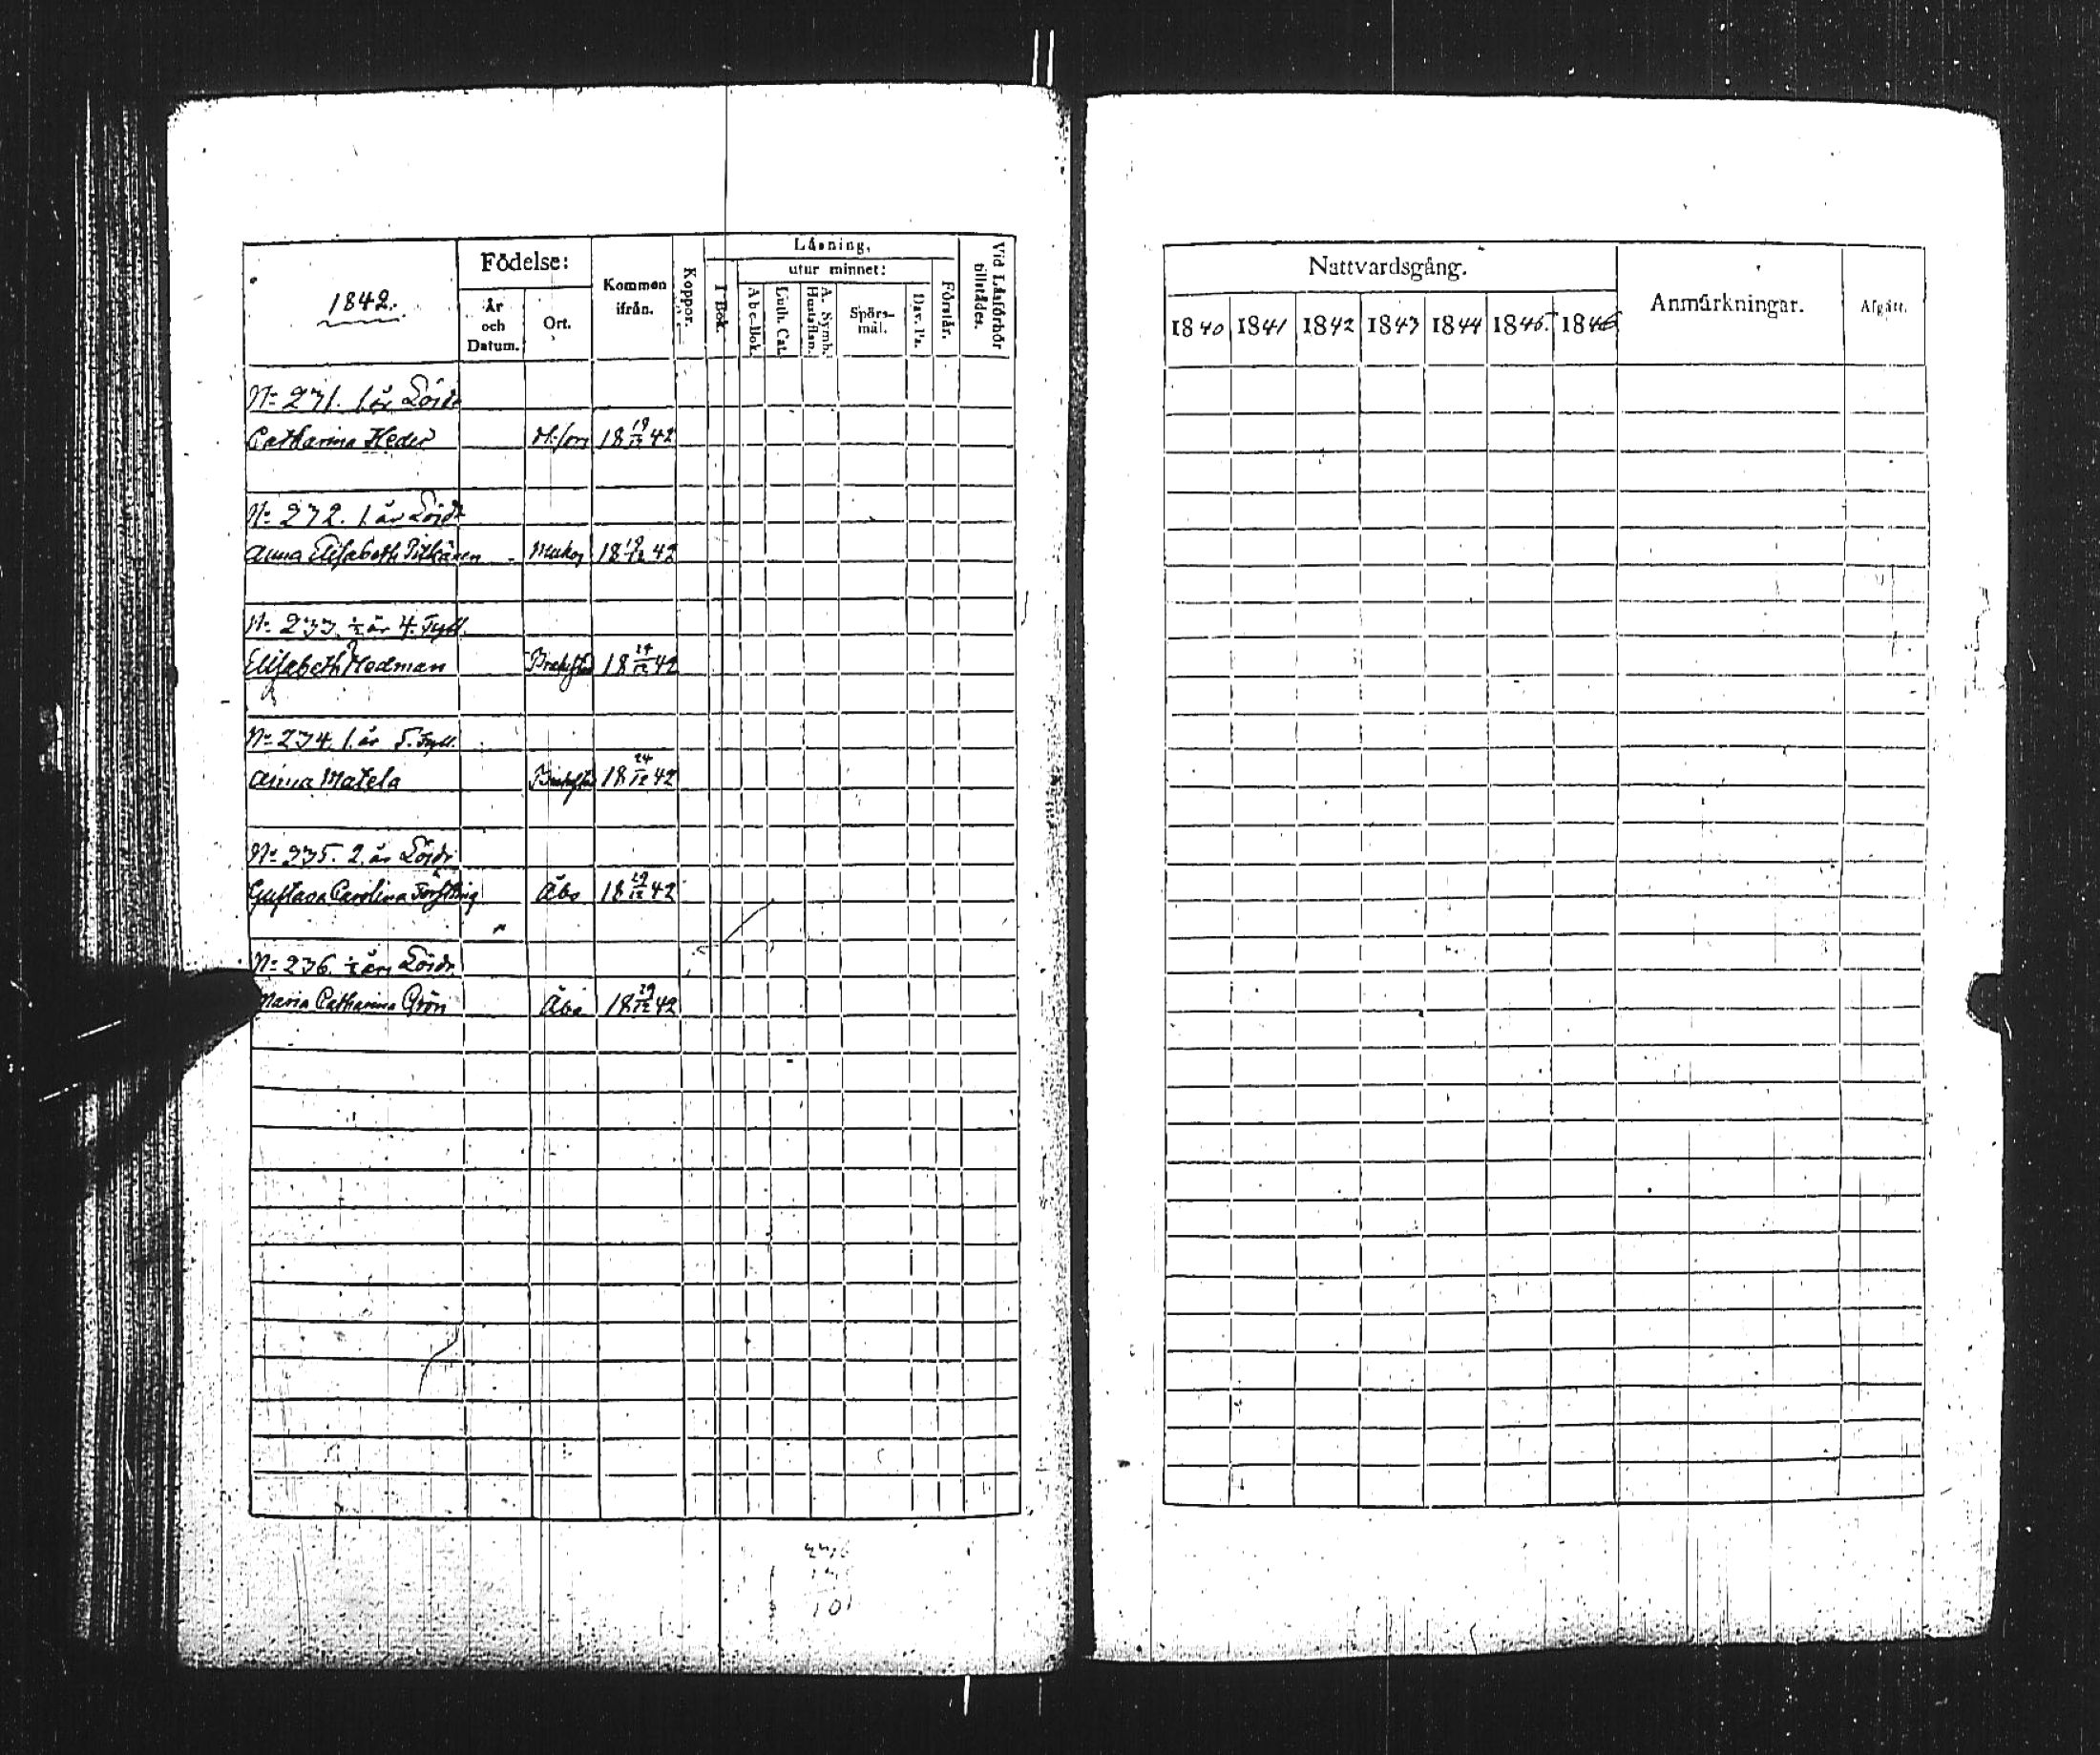 1842.
Födelse:
År och Datum.
Ort.
Kommen ifrån.
Koppor.
Läsning,
I Bok.
utur minnet:
Abc-Bok.
Luth. Cat.
A. Symb. Hustaflan.
Spörs-mål.
Dav. Ps.
Förstår.
Vid Läsförhör tillstädes.
Nattvardsgång.
1840 1841 1842 1843 1844 1845. 1846
Anmärkningar.
Afgått.
N: 271. 1 år
Catharina Heder H:fors 18 19/12 42
N: 272. 1 år
Anna Elisabeth Pitkänen 18 19/12 42
N: 273. ½ år 4. Tyll.
Elisabeth Hedman 18 24/12 42
N: 274. 1. år 5. Tyll.
Anna Matela 18 24/12 42
N: 275. 2. år
Gustava Carolina Åbo 18 29/12 42
N: 276. ½ år
Maria Catharina Grön Åbo 18 29/12 42
276
101